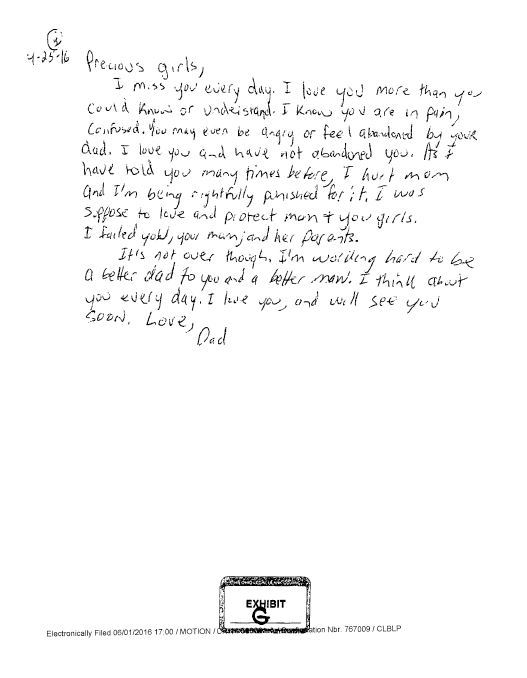 ②
4-25-16
Precious girls,
I miss you every day. I love you more than you
could know or understand. I know you are in pain,
confused. You may even be angry or feel abandoned by your
dad. I love you and have not abandoned you. As I
have told you many times before, I hurt mom
and I'm being rightfully punished for it. I was
suppose to love and protect mom + you girls.
I failed you, your mom, and her parents.
It's not over though. I'm working hard to be
a better dad to you and a better man. I think about
you every day. I love you, and will see you
soon. Love,
Dad
EXHIBIT
G
Electronically Filed 06/01/2016 17:00 / MOTION / Confirmation Nbr. 767009 / CLBLP